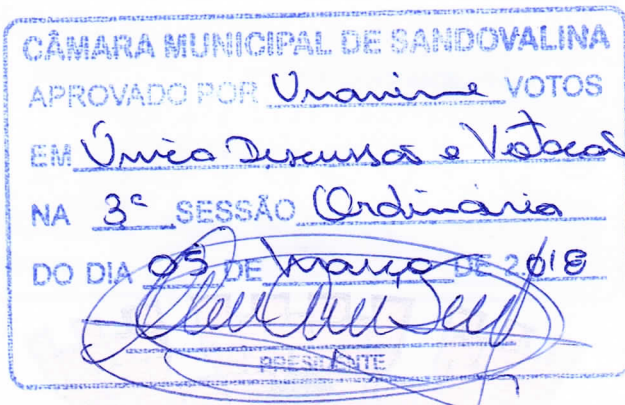 CÂMARA MUNICIPAL DE SANDOVALINA
APROVADO POR Unanime VOTOS
EM Única Discussão e Votação
NA 3ª SESSÃO Ordinária
DO DIA 05 DE março DE 2.018
PRESIDENTE